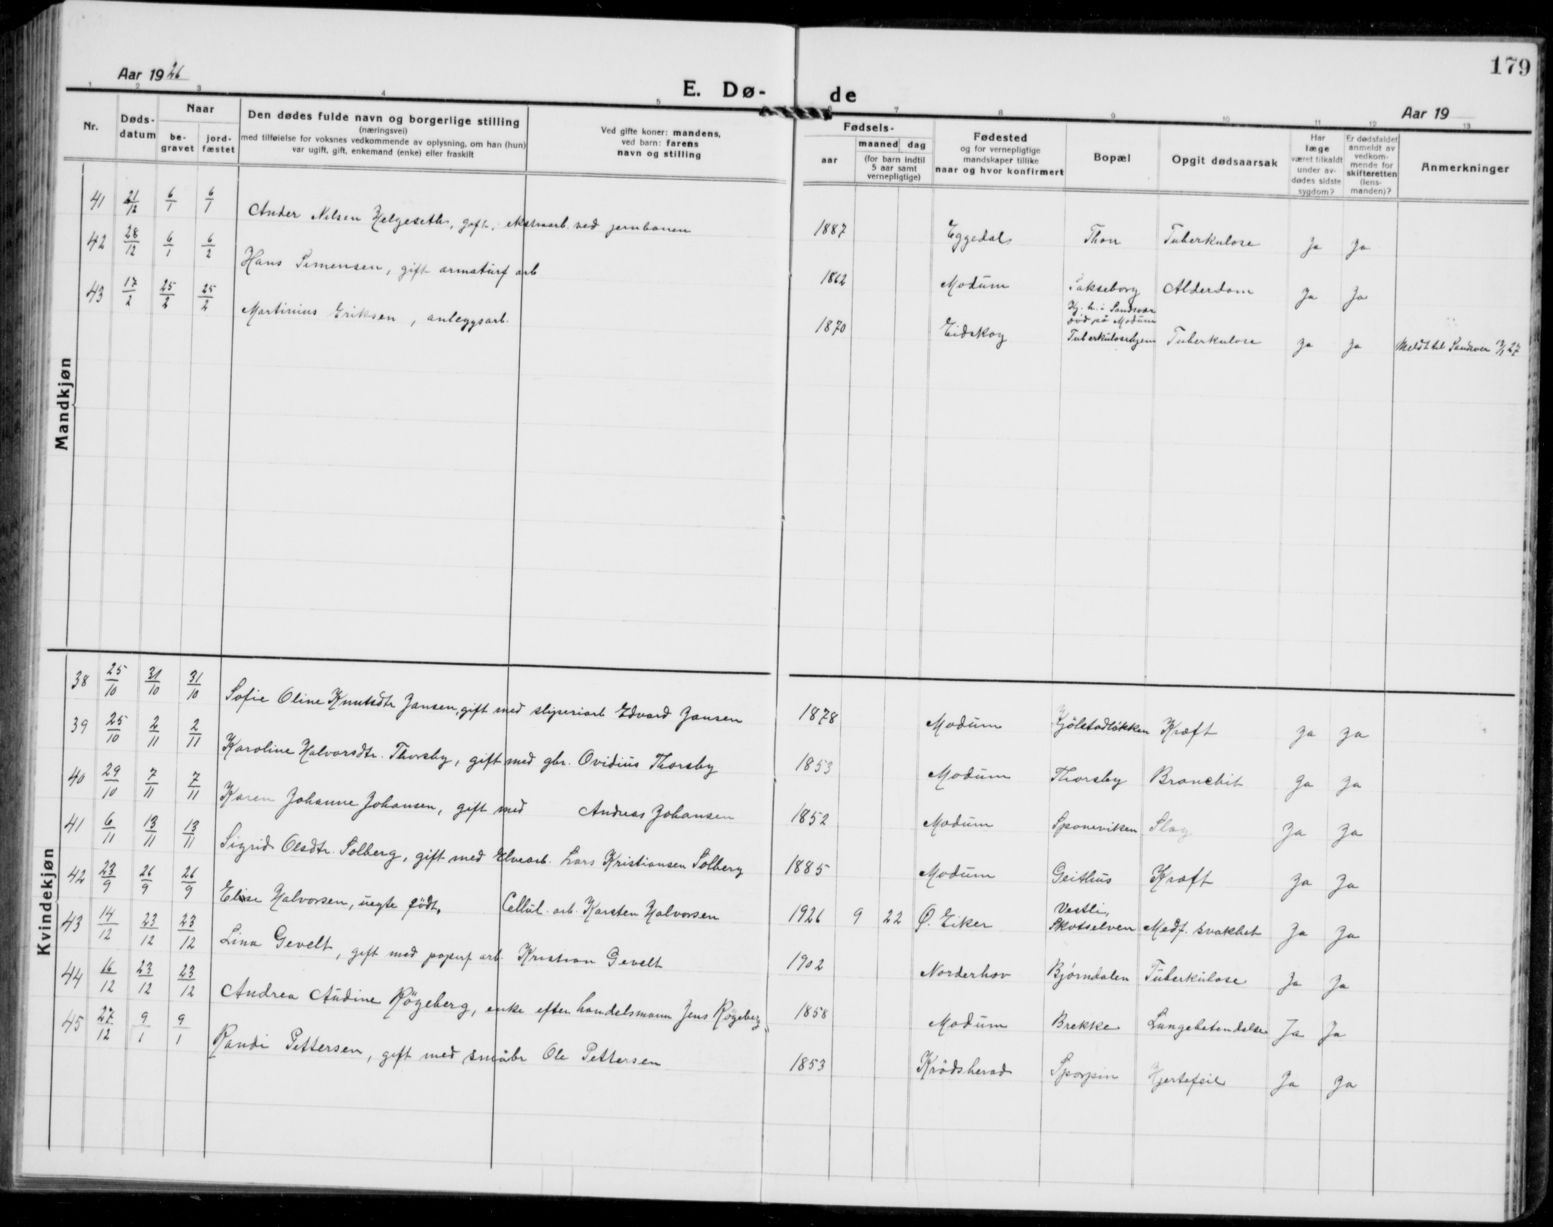 179
Aar 1926
E. Dø- de
Aar 19
1 2 3 4 5 7 8 9 10 11 12 13
Nr.
Døds-datum
Naar
be-gravet
jord-fæstet
Den dødes fulde navn og borgerlige stilling
(næringsvei)
med tilføielse for voksnes vedkommende av oplysning, om han (hun)
var ugift, gift, enkemand (enke) eller fraskilt
Ved gifte koner: mandens,
ved barn: farens
navn og stilling
Fødsels-
aar
maaned dag
(for barn indtil
5 aar samt
vernepligtige)
Fødested
og for vernepligtige
mandskaper tillike
naar og hvor konfirmert
Bopæl
Opgit dødsaarsak
Har
læge
været tilkaldt
under av-
dødes sidste
sygdom?
Er dødsfaldet
anmeldt av
vedkom-
mende for
skifteretten
(lens-
manden)?
Anmerkninger
Mandkjøn
41 21/12 6/1 6/1 Ander Nilsen Helgeseth, gift, ekstraarb. ved jernbanen 1887 Eggedal Thon Tuberkulose Ja Ja
42 28/12 6/1 6/2 Hans Simensen, gift armaturf arb 1862 Modum Sakseborg Alderdom Ja Ja
43 17/2 25/2 25/2 Martinius Eriksen, anleggsarb. 1870 Eidskog Hj. h. i Sandsvær
død på Modum
Tuberkulosehjem Tuberkulose Ja Ja Meldt til Sandsver 27
Kvindekjøn
38 25/10 31/10 31/10 Sofie Oline Knutsdtr Jansen, gift med sliperiarb Edvard Jansen 1878 Modum Kjølstadløkken Kræft Ja Ja
39 25/10 2/11 2/11 Karoline Halvorsdtr. Thorsby, gift med gbr. Ovidius Thorsby 1853 Modum Thorsby Bronchit Ja Ja
40 29/10 7/11 7/11 Karen Johanne Johansen, gift med Andreas Johansen 1852 Modum Sponeviken Slag Ja Ja
41 6/11 13/11 13/11 Sigrid Olsdtr. Solberg, gift med Elvearb. Lars Kristiansen Solberg 1885 Modum Geithus Kræft Ja Ja
42 23/9 26/9 26/9 Elise Halvorsen, uegte født, Cellul. arb. Karsten Halvorsen 1926 9 22 Ø. Eiker Vestli,
Skotselven Medf. svakhet Ja Ja
43 14/12 23/12 23/12 Lina Gevelt, gift med papirf arb Kristian Gevelt 1902 Norderhov Bjørndalen Tuberkulose Ja Ja
44 16/12 23/12 23/12 Andrea Audine Røgeberg, enke efter handelsmann Jens Røgeberg 1858 Modum Brekke Lungebetendelse Ja Ja
45 27/12 9/1 9/1 Randi Pettersen, gift med småbr Ole Pettersen 1853 Krødsherad Hjertefeil Ja Ja